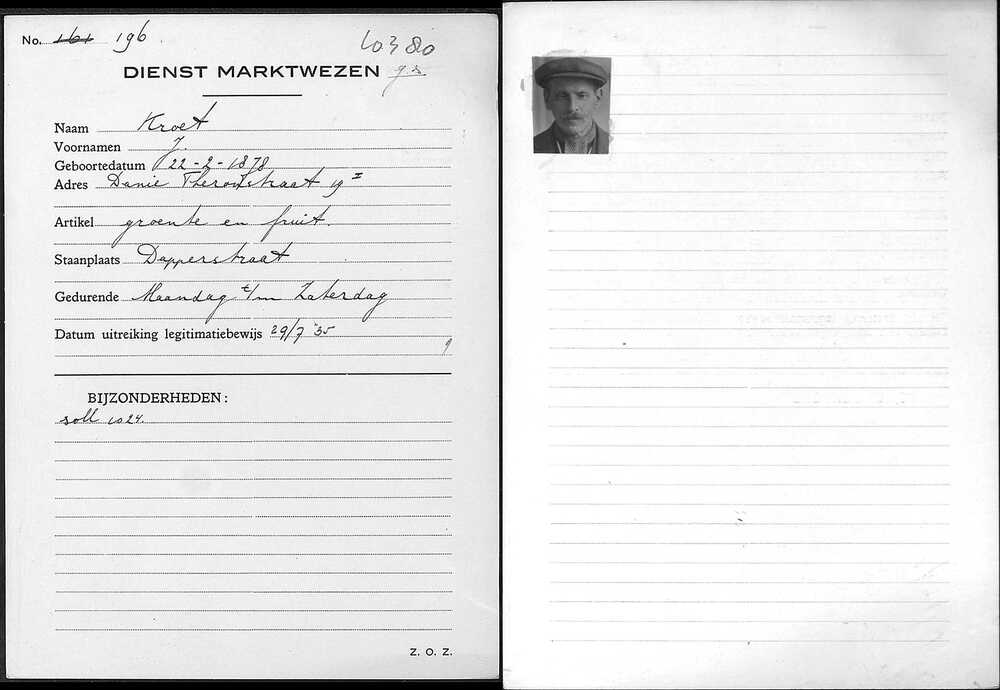 No. 161 196.
10380
DIENST MARKTWEZEN g.s.
Naam Kroet
Voornamen J.
Geboortedatum 22-2-1878
Adres Danie Theronstraat 19 II
Artikel groente en fruit.
Staanplaats Dapperstraat
Gedurende Maandag t/m Zaterdag
Datum uitreiking legitimatiebewijs 29/7 '35
9
BIJZONDERHEDEN:
soll 1024.
Z. O. Z.